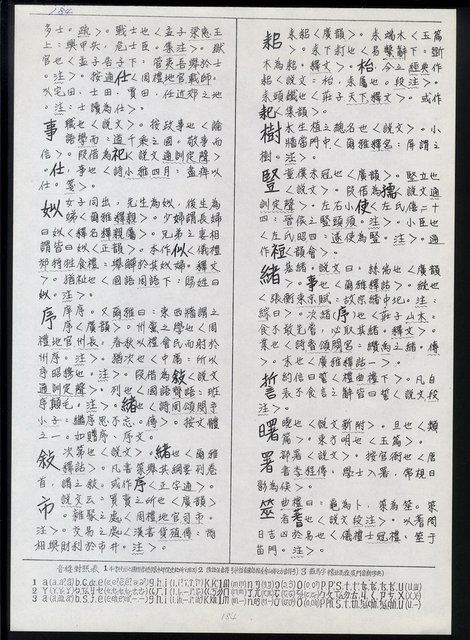 184
多士。疏>。戰士也<孟子梁惠王
上:興甲兵,危士臣。集注>。獄
官也<孟子告子下:管夷吾舉於士
。注>。按通仕<周禮地官載師。
以宅田,士田,賈田,任近郊之地
。注:士讀為仕>。
事 職也<說文>。按政事也<論
語學而:道千乘之國。敬事而
信>。段借為祀<說文通訓定聲>
。仕,事也<詩小雅四月:盡瘁以
仕。箋>。
姒 女子同出,先生為姒,後生為
娣<爾雅釋親>。少婦謂長婦
曰姒<釋名釋親屬>。兄弟之妻相
謂皆曰姒<正韻>。本作似<儀禮
特牲食禮:舉觶於其姒婦。釋文
>。猶祉也<國語周語下:賜姓曰
姒。注>。
序 庠序。又爾雅曰:東西牆謂之
序<廣韻>。州黨之學也<周
禮地官州長。春秋以禮會民而射於
州序。注>。猶次也<中庸:所以
序昭穆也。注>。段借為敘<說文
通訓定聲>。列也<國語齊語:班
序顛毛。注>。緒也<詩周頌閔予
小子:繼序思不忘。傳>。按文體
之一。如贈序,序文。
敘 次第也<說文>。緒也<爾雅
釋詁>。凡書策舉其綱要列卷
首,謂之敘。或作序<正字通>。
市 說文云:買賣之所也<廣韻>
。雜聚之處<周禮地官司市。
注>。交易之處<漢書貨殖傳:商
相與語財利於市井。注>。
耜 耒耜<廣韻>。耒端木<玉篇
>。耒下釘也<易繫辭下:斲
木為耜。釋文>。枱,今之經典作
耜<說文:枱,耒耑也。段注>。
耒頭鐵也<莊子天下釋文>。或作
耛<集韻>。
樹 木生植之總名也<說文>。小
牆當門中<爾雅釋宮:屏謂之
樹。注>。
豎 童僕未冠也<廣韻>。堅立也
<說文>。段借為孺<說文通
訓定聲>。左右小使<左氏僖二十
四:晉侯之豎頭須。注>。小臣也
<左氏昭四:遂使為豎。注>。通
作裋<韻會>。
緒 基緒。說文曰:絲耑也<廣韻
>。事也<爾雅釋詁>。統也
<張衡東京賦:故宗緒中圮。注:
綜曰>。次緒(序)也<莊子山木:
食不敢先嘗,必取其緒。釋文>。
業也<詩魯頌閟宮:纘禹之緒。傳
>。末也<廣雅釋詁一>。
誓 約信曰誓<禮曲禮下>。凡自
表不食言之辭皆曰誓<說文段
注>。
曙 曉也<說文新附>。旦也<類
篇>。東方明也<玉篇>。
署 部署<說文>。按官衙也<唐
書李程傳。學士入署,常視日
影為侯>。
筮 曲禮曰:龜為卜,筴為筮。筴
者蓍也<說文段注>。以蓍問
日吉凶於易也<儀禮士冠禮。筮于
庙門。注>。
音標對照表
184